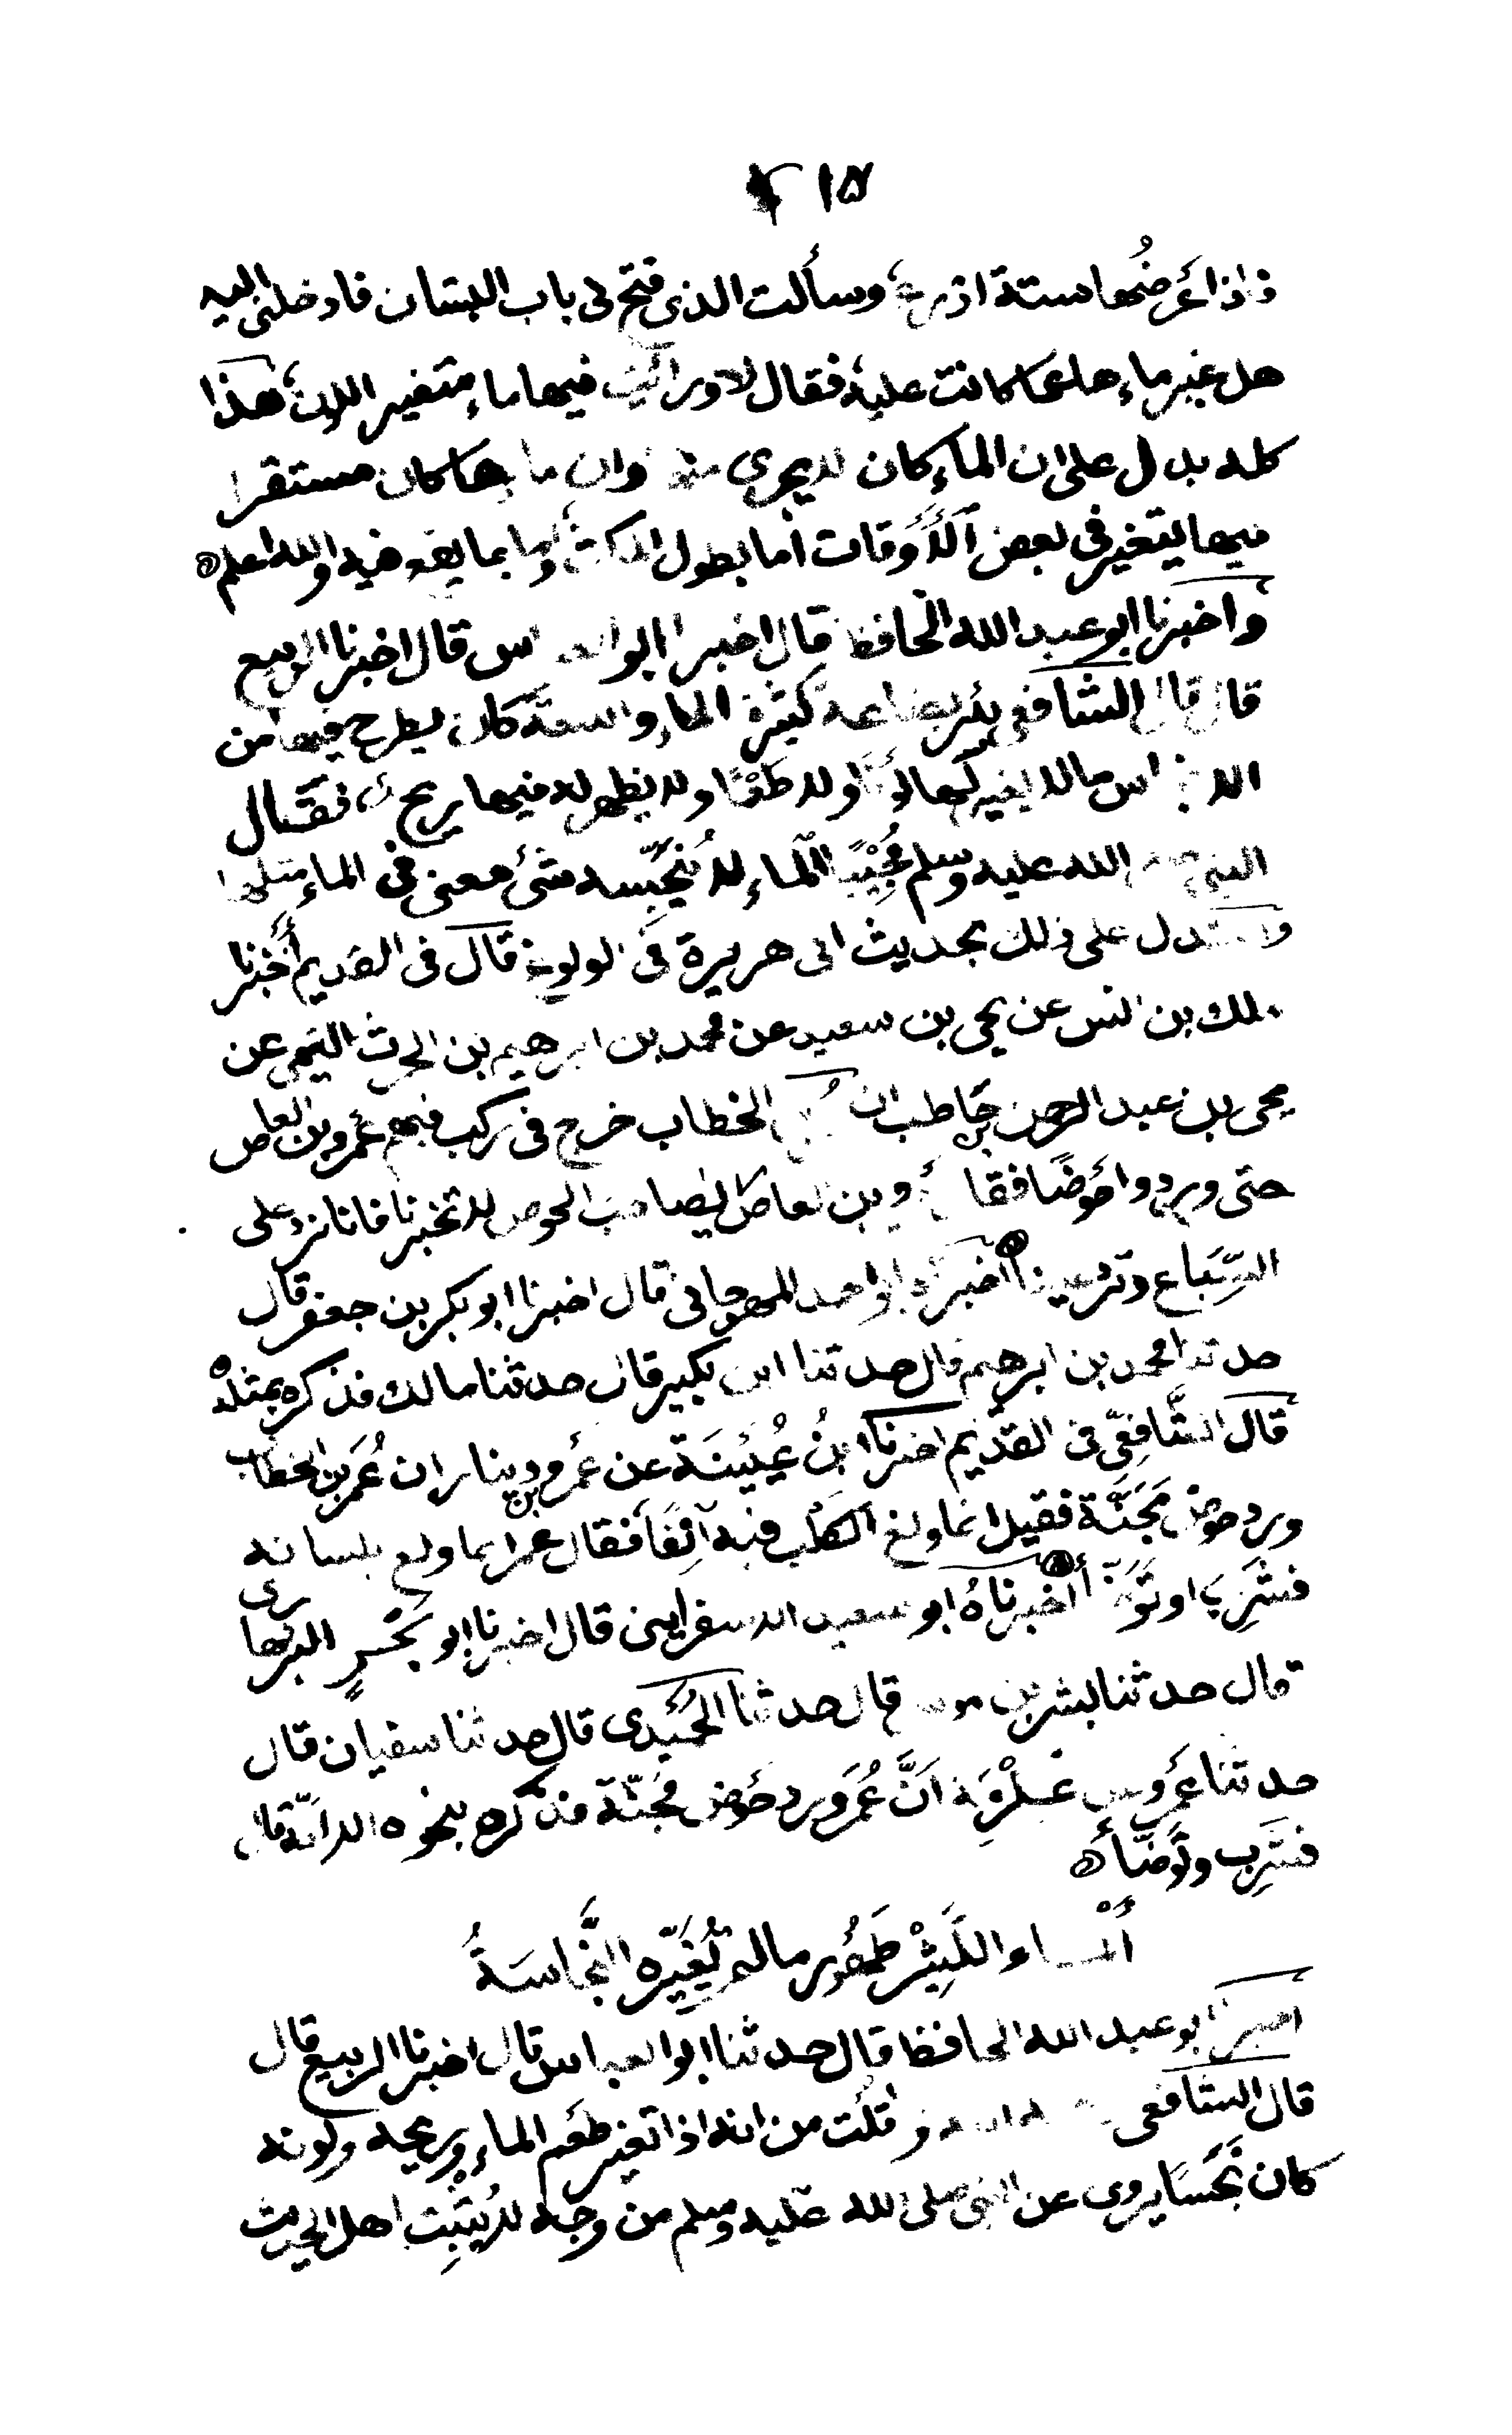 ١٥
فاذا عَرضُها ستة اذرع وسألت الذى فتح لى باب البستان فادخلنى اليه
هل غير ماء حلها كانت عليه فقال لا ورأيت فيها ماء متغير اللون هذا
كله يدل على ان الماء كان لا يجرى وان ما بها كان مستقرا
فيها يتغير فى بعض الأَوقات أما بطول المكث وما بما يقع فيه والله اعلم
واخبرنا ابو عبد الله الحافظ قال اخبرنا ابو العباس قال اخبرنا الربيع
قال قال الشافعى بئر بضاعة كثيرة الماء واسعة كان يطرح فيها من
الانجاس ما لا يغير لها لونًا ولا طعْمًا ولا يظهر له فيها ريح فقال
النبى صلى الله عليه وسلم مُجِيْبًا الماء لا يُنجّسه شىء معنى فى الماء مثلها
واستدل على ذلك بحديث ابى هريرة فى الولوغ قال فى القديم أخبرنا
ملك بن انس عن يحيى بن سعيد عن محمد بن ابرهيم بن الحرث التيمى عن
يحيى بن عبد الرحمن بن حَاطب ان الخطاب خرج فى ركب فيهم عَمرو بن العاص
حتى وردوا حَوضًا فقا عَمرو بن العاص يا صاحب الحوض لا تخبرنا فانا نرد على
السِّبَاع وترد علينا أخبرناه ابو احمد المهرجانى قال اخبرنا ابو بكر بن جعفر قال
حدثنا محمد بن ابرهيم قال حدثنا ابن بكير قال حدثنا مالك فذكره بمثله
قال الشَّافِعِّى فى القدَيم اخبرنا ابنُ عُيَيْنَة عن عَمرو بن دينار ان عُمَر بن الخطاب
ورد حوض مَجَنَّة فقيل انما ولغ الكلْب فيه آنِفًا فقال عمر انما ولغ بلسانه
فشرِب او توضأ أخبرناهُ ابو سعيد الاسفراينى قال اخبرنا ابو بَحْرٍ البربهارى
قال حدثنا بشر بن موسى قال حدثنا الحُمَيْدى قال حدثنا سفيان قال
حدثنا عَمرو عن عِكْرِمَة اَنَّ عُمَر ورد حَوض مَجَنّة فذكره بنحوه الا انّه قال
فشرِب وتَوضَّأ
اَلْمـــاءُ الكَثِيْر طَهُوْر مالم تُغَيّره النَّجاسَةُ
اخبرنا ابو عبد الله الحافظ قال حدثنا ابو العباس قال اخبرنا الربيع قال
قال الشافعى وما قلت من انه اذا تغير طعم الماء وريحه ولونه
كان نَجَسًا يروى عن النبى صلى الله عليه وسلم من وجه لا يُثبِت اهل الحديث